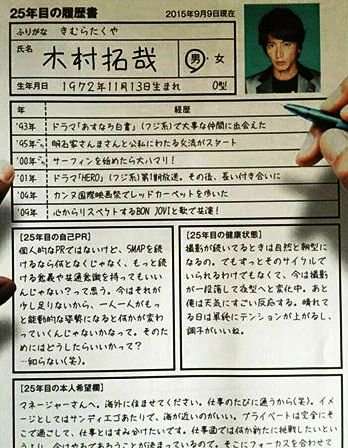 25年目の履歴書
2015年9月9日現在
ふりがな きむらたくや
氏名
木村拓哉
男・女
生年月日 1972年11月13日生まれ O型
年 経歴
'93年 ドラマ「あすなろ白書」(フジ系)で大事な仲間に出会えた
'95年ごろ 明石家さんまさんと公私にわたる交流がスタート
'00年ごろ サーフィンを始めたら大ハマり!
'01年 ドラマ「HERO」(フジ系)第1期放送。その後、長い付き合いに
'04年 カンヌ国際映画祭でレッドカーペットを歩いた
'09年 心からリスペクトするBON JOVIと歌で共演!
【25年目の自己PR】
個人的なPRではないけど、SMAPを続
けるなら何となくじゃなく、もっと続
ける意義や共通意識を持ってもいい
んじゃない?って思う。今はそれが
少し足りないから、一人一人がもっ
と能動的な姿勢になると何かが変わ
っていくんじゃないかなって。そのた
めにはどうしたらいいかって?
…知らない(笑)。
【25年目の健康状態】
撮影が続いてるときは自然と朝型に
なるの。でもずっとそのサイクルで
いられるわけでもなくて、今は撮影
が一段落して夜型へと変化中。あと
俺は天気にすごい反応する。晴れて
る日は単純にテンションが上がるし、
調子がいいね。
【25年目の本人希望欄】
マネージャーさんへ。海外に住ませてください。仕事のたびに通うから(笑)。イメ
ージとしてはサンディエゴあたりで、海が近いのがいい。プライベートは完全にそ
こで過ごして、仕事とはすみ分けたいです。仕事面では何か新たに挑戦したいとい